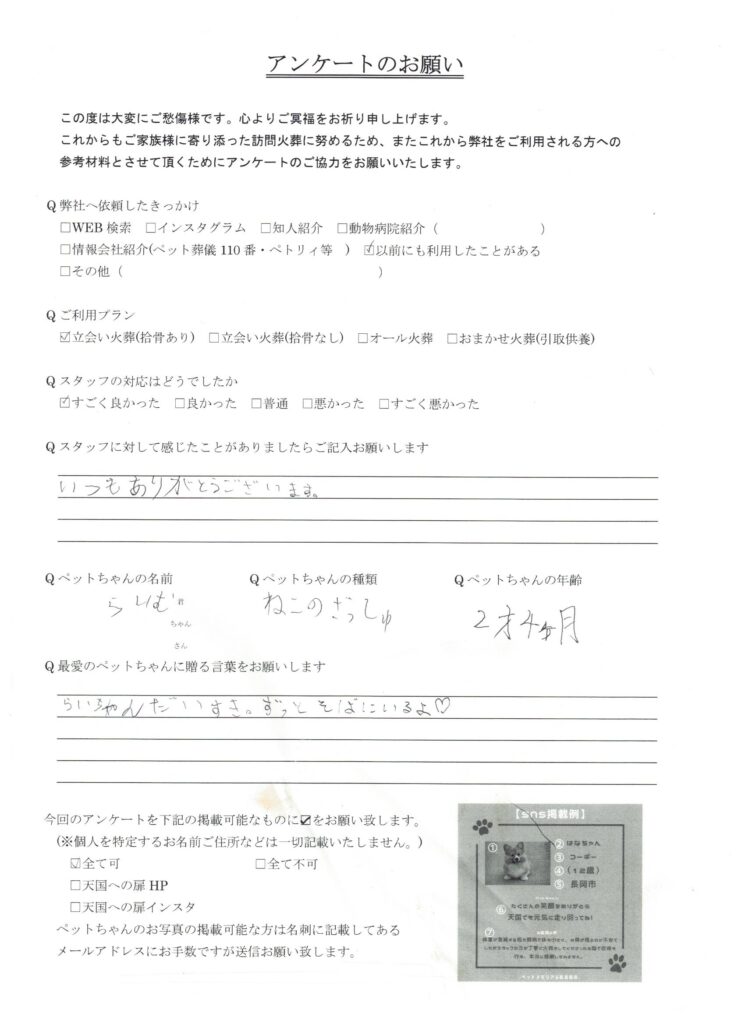 アンケートのお願い
この度は大変にご愁傷様です。心よりご冥福をお祈り申し上げます。
これからもご家族様に寄り添った訪問火葬に努めるため、またこれから弊社をご利用される方への
参考材料とさせて頂くためにアンケートのご協力をお願いいたします。
Q 弊社へ依頼したきっかけ
□WEB 検索 □インスタグラム □知人紹介 □動物病院紹介（ ）
□情報会社紹介(ペット葬儀 110 番・ペトリィ等 ) ☑以前にも利用したことがある
□その他（ ）
Q ご利用プラン
☑立会い火葬(拾骨あり) □立会い火葬(拾骨なし) □オール火葬 □おまかせ火葬(引取供養)
Q スタッフの対応はどうでしたか
☑すごく良かった □良かった □普通 □悪かった □すごく悪かった
Q スタッフに対して感じたことがありましたらご記入お願いします
いつもありがとうございます。
Q ペットちゃんの名前 Q ペットちゃんの種類 Q ペットちゃんの年齢
らいむ 君 ねこのざっしゅ 2才4ヶ月
ちゃん
さん
Q 最愛のペットちゃんに贈る言葉をお願いします
らいちゃんだいすき。ずっとそばにいるよ♡
今回のアンケートを下記の掲載可能なものに☑をお願い致します。
(※個人を特定するお名前ご住所などは一切記載いたしません。)
☑全て可 □全て不可
□天国への扉 HP
□天国への扉インスタ
ペットちゃんのお写真の掲載可能な方は名刺に記載してある
メールアドレスにお手数ですが送信お願い致します。
【sns掲載例】
① ② はなちゃん
③ コーギー
④ (12歳)
⑤ 長岡市
⑥ たくさんの笑顔をありがとう
天国でも元気に走り回ってね!
⑦